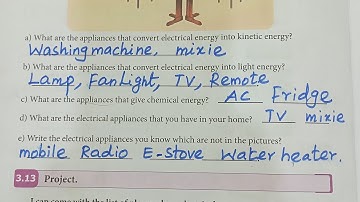 a) What are the appliances that convert electrical energy into kinetic energy?
Washing machine, mixie
b) What are the appliances that convert electrical energy into light energy?
Lamp, Fan Light, TV, Remote
c) What are the appliances that give chemical energy? AC Fridge
d) What are the electrical appliances that you have in your home? TV mixie
e) Write the electrical appliances you know which are not in the pictures?
mobile Radio E-Stove Water heater.
3.13 Project.